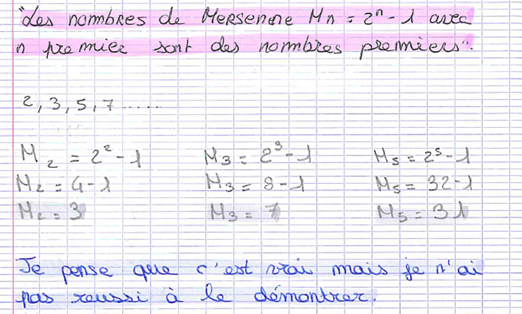 "Les nombres de Mersenne Mn = 2ⁿ - 1 avec
n premier sont des nombres premiers".
2, 3, 5, 7 .....
M₂ = 2² - 1 M₃ = 2³ - 1 M₅ = 2⁵ - 1
M₂ = 4 - 1 M₃ = 8 - 1 M₅ = 32 - 1
M₂ = 3 M₃ = 7 M₅ = 31
Je pense que c'est vrai mais je n'ai
pas reussi à le démontrer.